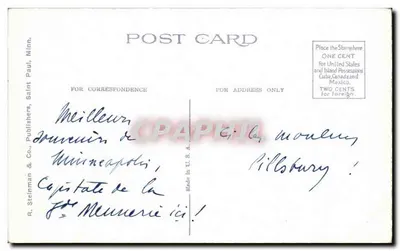 POST CARD
Place the Stamp here
ONE CENT
for United States
and Island Possessions
Cuba, Canada and
Mexico.
TWO CENTS
for Foreign.
FOR CORRESPONDENCE
FOR ADDRESS ONLY
R. Steinman & Co., Publishers, Saint Paul, Minn.
Made in U.S.A.
Meilleurs
souvenirs de
Minneapolis,
Capitale de la
gde Meunerie ici !
Et les moulins
Pillsbury !
CPARAMA